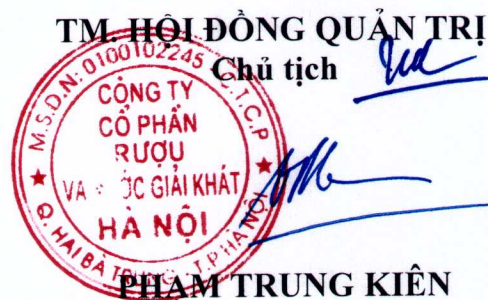 TM. HỘI ĐỒNG QUẢN TRỊ
Chủ tịch
M.S.D.N: 0100102245 - C.T.C.P
CÔNG TY
CỔ PHẦN
RƯỢU
GIẢI KHÁT
HÀ NỘI
Q. HAI BÀ TRƯNG - T.P HÀ NỘI
PHẠM TRUNG KIÊN